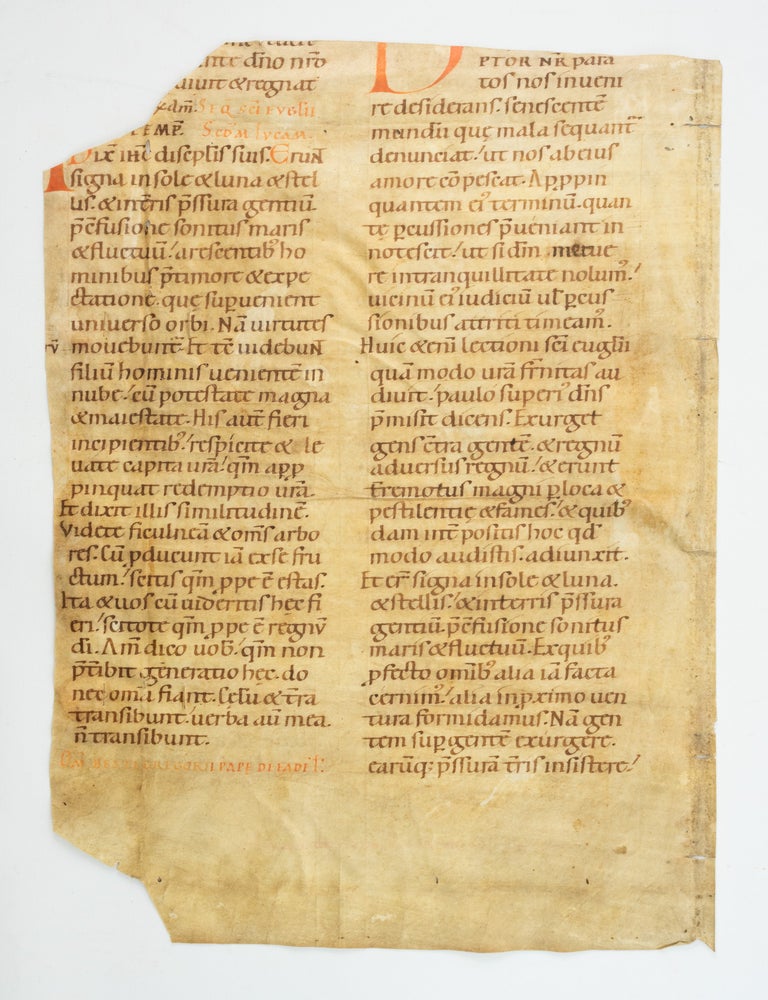 dño nr̃o
diuit & regnat
SEQ̃ SC̃I EVGL̃II
TEMP̃. SECD̃M LVCAM.
Dix̃ ih̃c discipl̃is suis. Erunt
signa in sole & luna & stel
lis. & in t̃ris p̃ssura gentiũ
p̃ c̃fusione sonitus maris
& fluctuũ. arescentib; ho
minibus p̃ timore & expe
ctatione. que sup̃uenient
uniuerso orbi. Nã uirtutes
mouebunt̃. Et tc̃ uidebunt
filiũ hominis uenientẽ in
nube. cũ potestate magna
& maiestate. His aut̃ fieri
incipientib;. respicite & le
uate capita ur̃a. qm̃ app̃p
pinquat redemptio ur̃a.
Et dixit illis similitudinẽ.
Videte ficulneã & om̃s arbo
res. Cũ p̃ducunt iã ex se fru
ctum. scitis qm̃ p̃pe ẽ estas.
Ita & uos cũ uideritis hec fi
eri. scitote qm̃ p̃pe ẽ regnũ
d̃i. Am̃ dico uob̃. qm̃ non
p̃t̃ibit generatio hec. do
nec om̃a fiant. Celũ & t̃ra
transibunt. uerba aũ mea
ñ transibunt.
GREGORII PAPE DE EADẼ
D
PTOR NR̃ para
tos nos inueni
re desiderans. senescentẽ
mundũ que mala sequant̃
denunciat. ut nos ab eius
amore cõpescat. App̃pin
quantem ei' terminũ. quan
tẽ p̃cussiones p̃ueniant in
notescit. ut si dm̃ metue
re in tranquillitate nolum'.
uicinũ ei' iudiciũ ul̃ p̃cus
sionibus attriti timeam'.
Huic & eni̇̃ lectioni sc̃i euglĩi
quã modo ura fr̃nitas au
diuit. paulo superi' dñs
p̃misit dicens. Exurget
gens c̃tra gentẽ. & regnũ
aduersus regnũ. & erunt
t̃remotus magni p̃ loca &
pestilentie & fames. & quib'
dam int̃positis hoc qd̃
modo audistis. adiunxit.
Et er̃ signa in sole & luna.
& stellis. & in terris p̃ssura
gentiũ. p̃ c̃fusione sonitus
maris & fluctuũ. Ex quib'
p̃fecto om̃ib' alia iã facta
cernim'. alia in p̃ximo uen
tura formidamus. Nã gen
tem sup̃ gentẽ exurgere.
earũq; p̃ssurã t̃ris insistere.